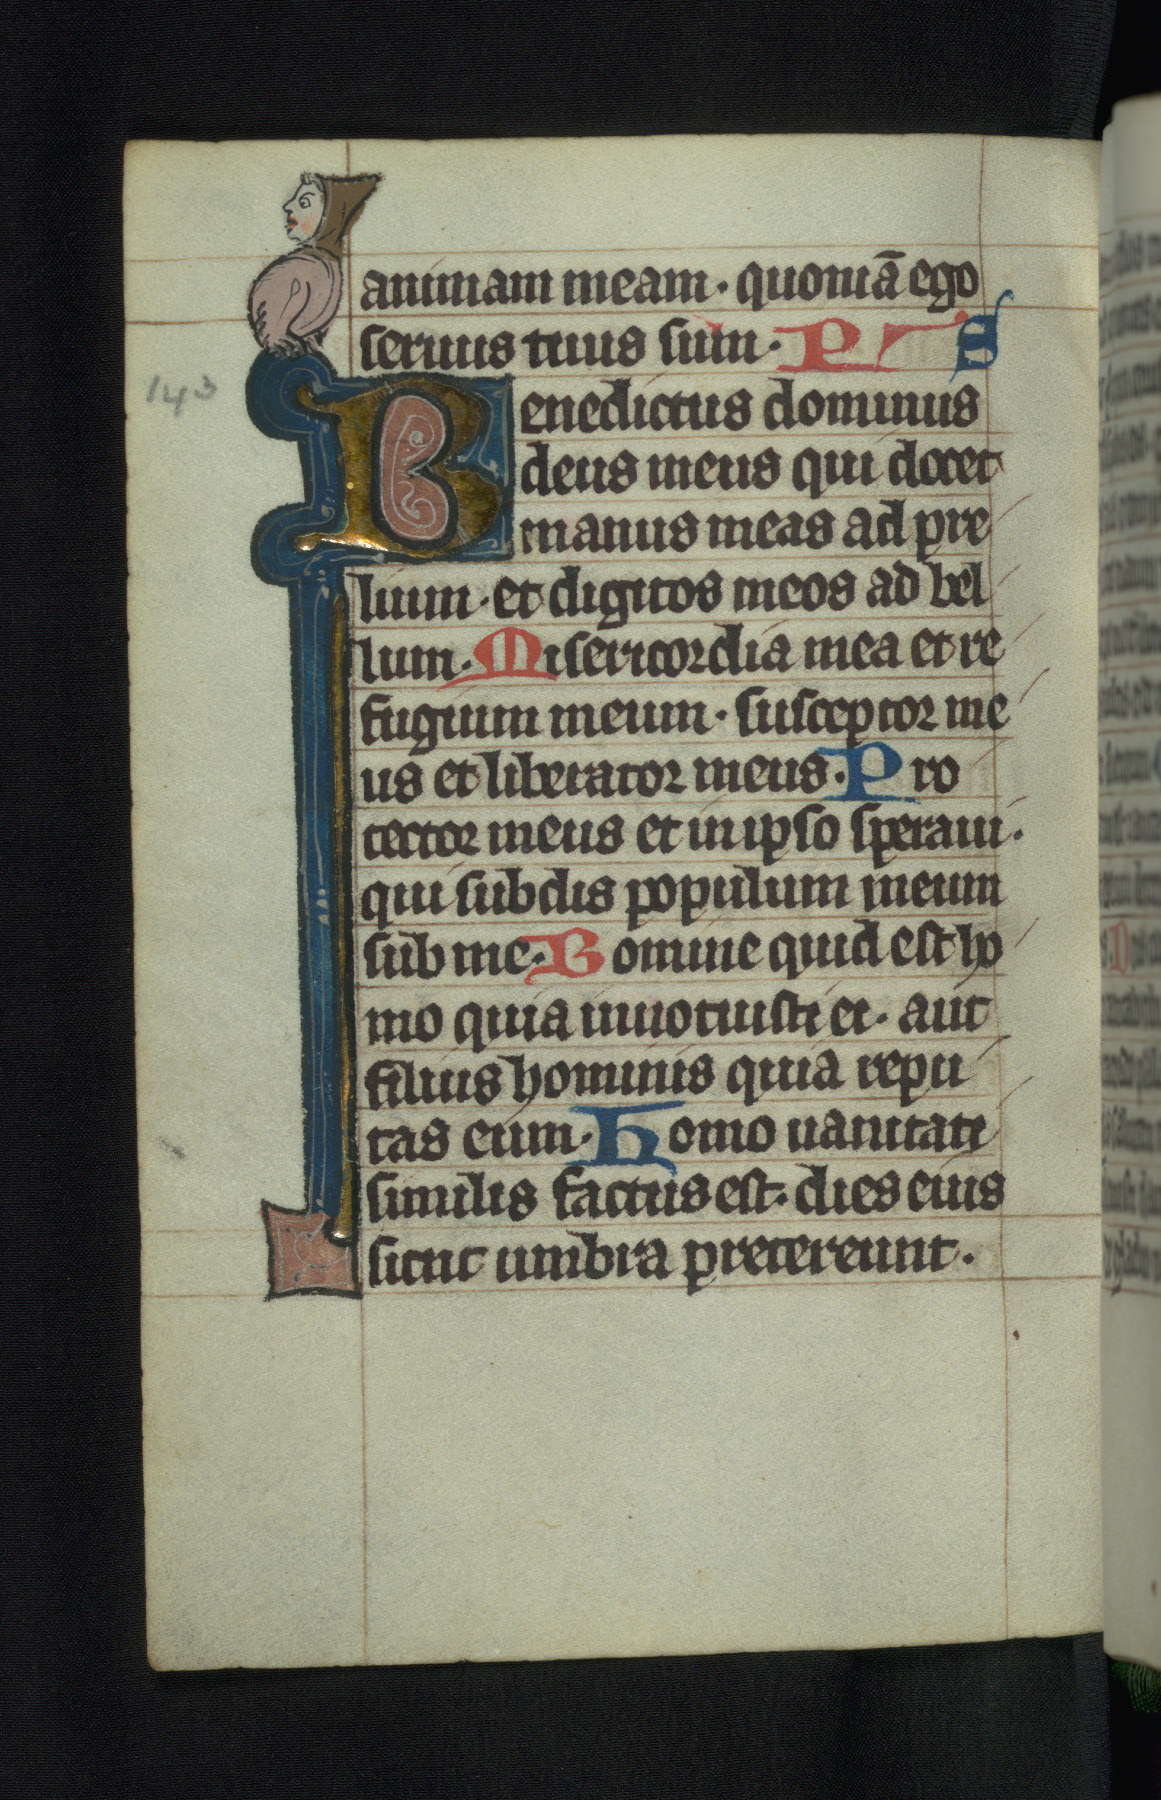 animam meam · quoniā ego
seruus tuus sum · P S
143
Benedictus dominus
deus meus qui docet
manus meas ad pre
lium · et digitos meos ad bel
lum · Misericordia mea et re
fugium meum · susceptor me
us et liberator meus · Pro
tector meus et in ipso speraui ·
qui subdis populum meum
sub me · Domine quid est ho
mo quia innotuisti ei · aut
filius hominis quia repu
tas eum · Homo uanitati
similis factus est · dies eius
sicut umbra pretereunt ·